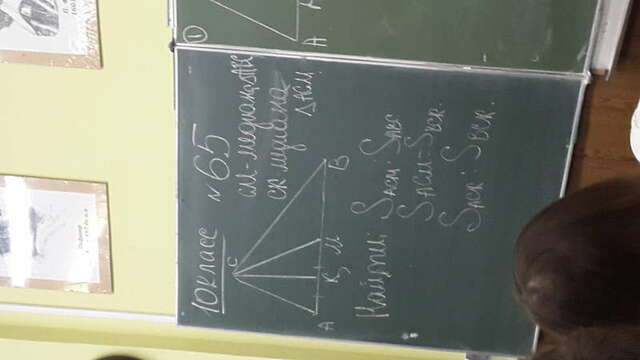 10 класс № 65
СМ-медиана ΔАВС
СК медиана
ΔАСМ
C
A K M B
Найти: S_ACM : S_ABC
S_ACM : S_BCK.
S_ACK : S_BCK.
1
A